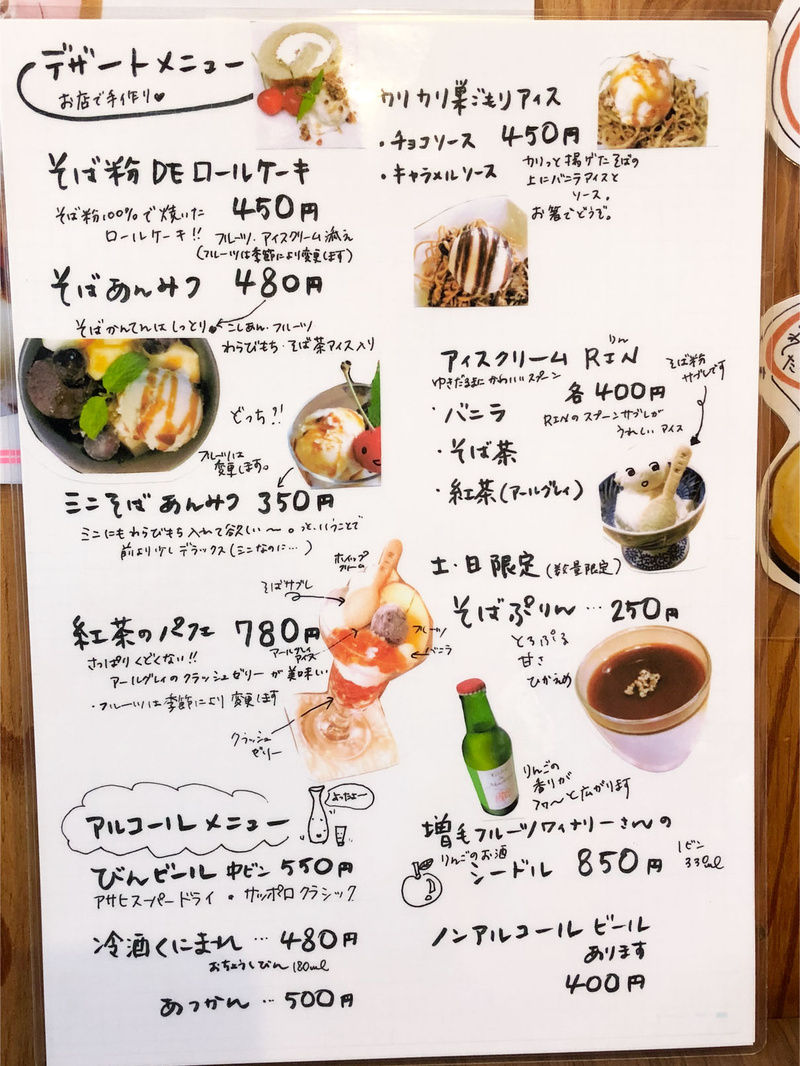 デザートメニュー
お店で手作り♥
そば粉DEロールケーキ
450円
そば粉100%で焼いた
ロールケーキ!!
フルーツ・アイスクリーム添え
(フルーツは季節により変更します)
そばあんみつ 480円
そばかんてんはしっとり♥こしあん・フルーツ
わらびもち・そば茶アイス入り
どっち?!
フルーツは
変更します。
ミニそばあんみつ 350円
ミニにもわらびもち入れて欲しい〜。っということで
前より少しデラックス(ミニなのに…)
ホイップ
クリーム
そばサブレ
紅茶のパフェ 780円
アールグレイ
アイス
フルーツ
バニラ
さっぱりくどくない!!
アールグレイのクラッシュゼリーが美味い
・フルーツは季節により変更します
クラッシュ
ゼリー
アルコールメニュー
よったよー
びんビール 中ビン 550円
アサヒスーパードライ・サッポロクラシック
冷酒くにまれ…480円
おちょうしびん180ml
あつかん…500円
カリカリ巣ごもりアイス
・チョコソース 450円
・キャラメルソース
カリっと揚げたそばの
上にバニラアイスと
ソース。
お箸でどうぞ。
アイスクリーム RIN
りん
ゆきだるまにかわいいスプーン
各400円
そば粉
サブレです
・バニラ
RINのスプーンサブレが
うれしいアイス
・そば茶
・紅茶(アールグレイ)
土・日限定(数量限定)
そばぷりん…250円
とろぷる
甘さ
ひかえめ
りんごの
香りが
フワ〜と広がります
増毛フルーツワイナリーさんの
りんごのお酒
シードル 850円
1ビン
330ml
ノンアルコールビール
あります
400円